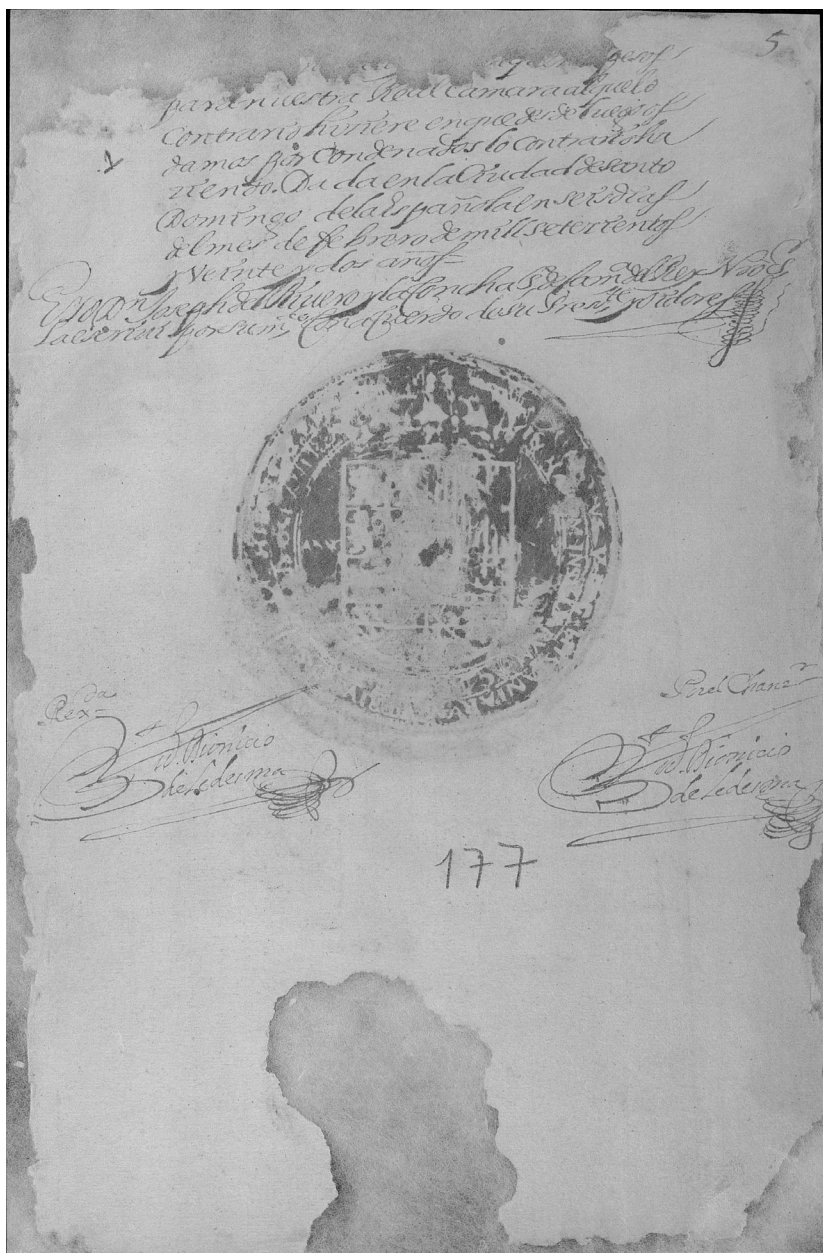 5
pesos
para nuestra Real Camara al que lo
Contrario hiziere en que desde luego os
damos por Condenados lo Contrario ha
ziendo. Dada en la Ciudad de Santo
Domingo de la Española en seis dias
del mes de febrero de mill setezientos
y Veinte y dos años
Yo Dn Joseph del Rivero y la Concha Sº de cam.ª del Rey Nrô Sr
la escriui por su m.do Con acuerdo de su Press.te y oidores
Rex.da
Dionicio
de Ledesma
Por el Chanz.r
Dionicio
de Ledesma
177